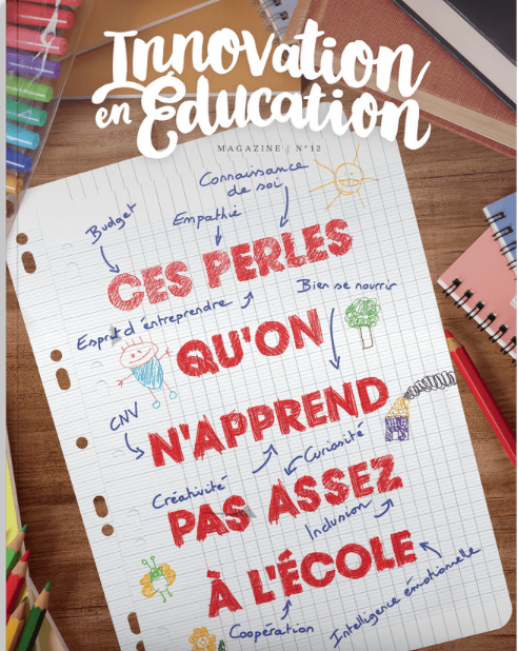 Innovation
en Éducation
MAGAZINE | N°12
Connaissance
de soi
Budget
Empathie
CES PERLES
Esprit d'entreprendre
Bien se nourrir
QU'ON
CNV
N'APPREND
Curiosité
Créativité
PAS ASSEZ
Inclusion
À L'ÉCOLE
Intelligence émotionnelle
Coopération